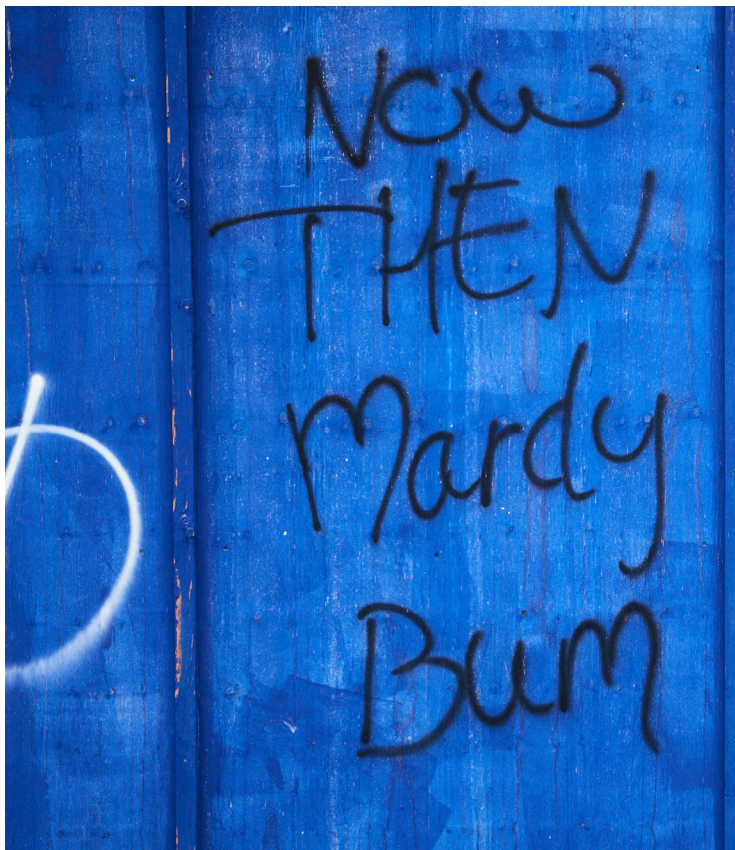 Now
THEN
Mardy
Bum